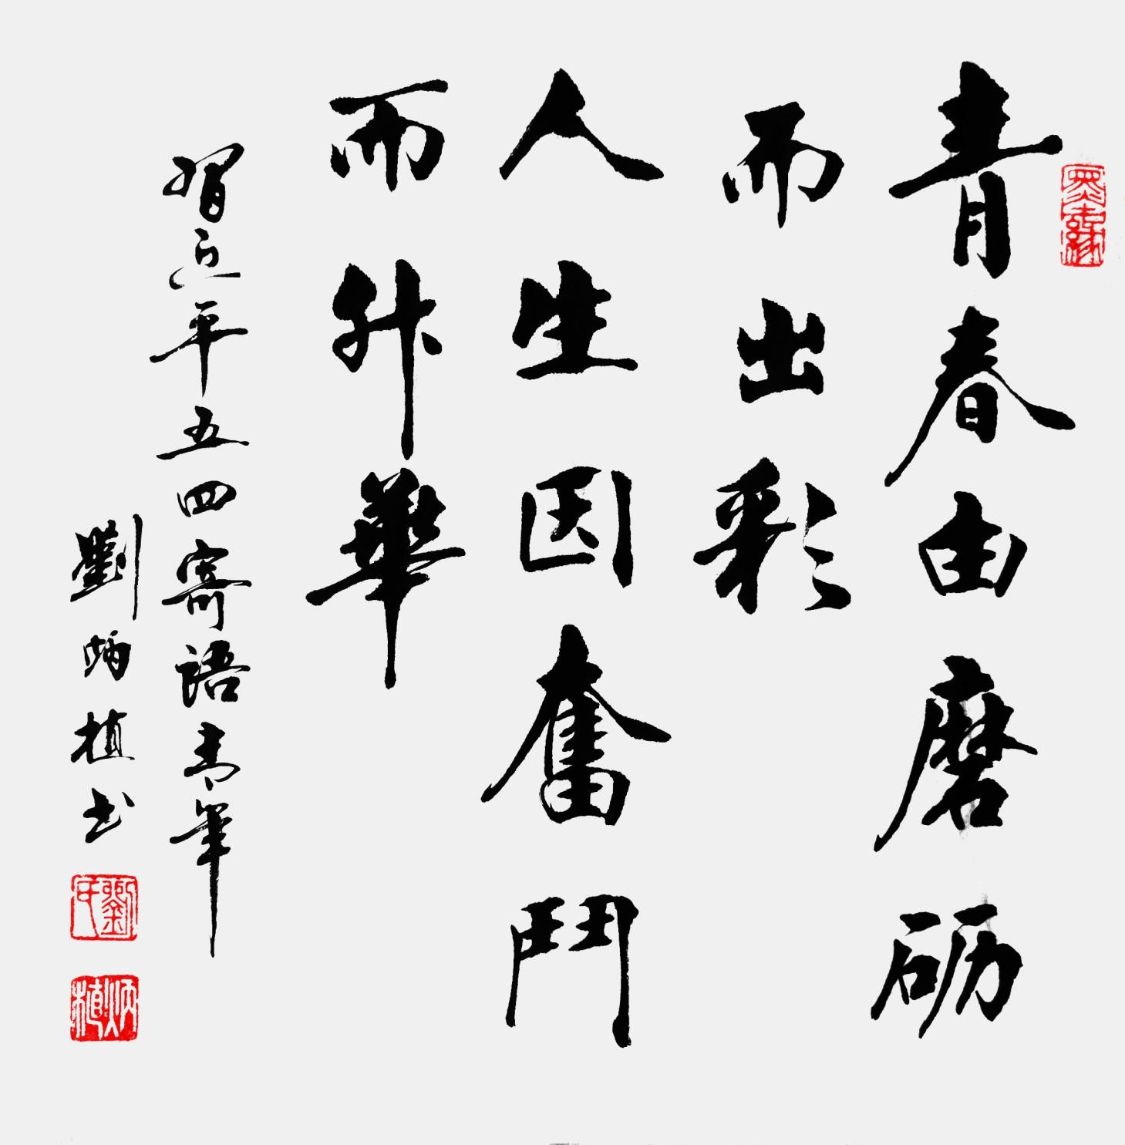 青春由磨砺
而出彩
人生因奮鬥
而升華
習近平五四寄語青年
劉炳植书
墨緣
炳植